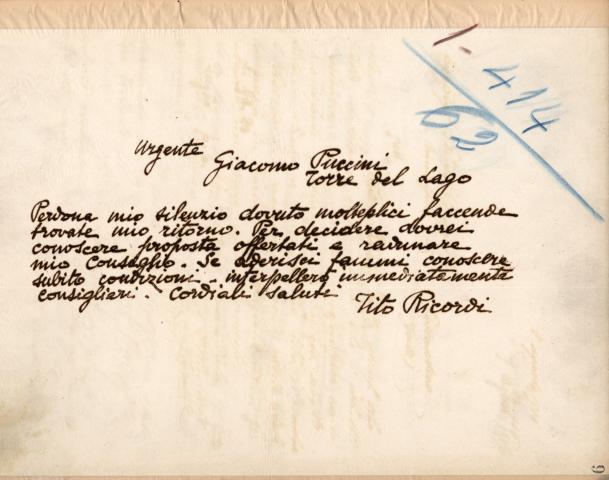 1-414
62
Urgente
Giacomo Puccini
Torre del Lago
Perdona mio silenzio dovuto molteplici faccende
trovate mio ritorno. Per decidere dovrei
conoscere proposta offertati e radunare
mio Consiglio. Se aderisci fammi conoscere
subito condizioni - interpellerò immediatamente
consiglieri. Cordiali saluti
Tito Ricordi
6